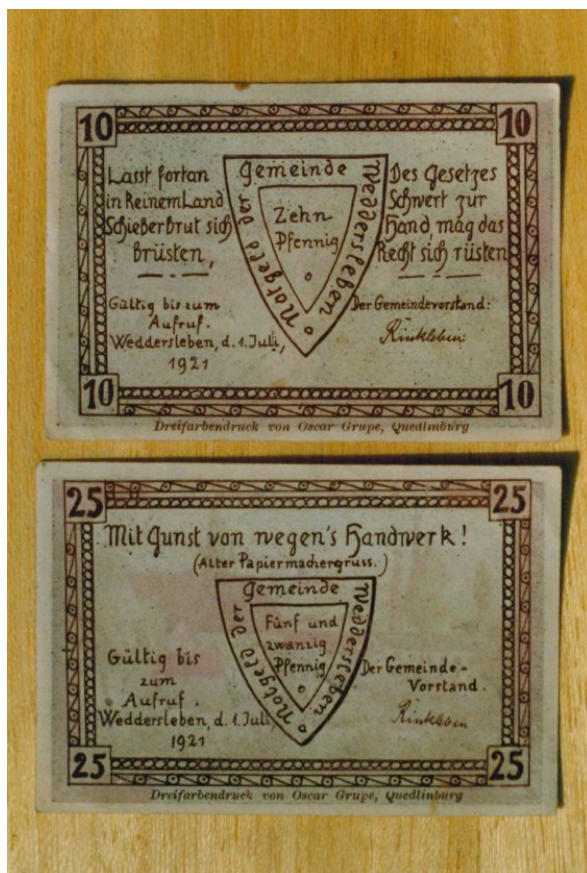 10
10
Lasst fortan
in Keinem Land
Schieberbrut sich
brüsten,
Notgeld der Gemeinde Weddersleben
Zehn
Pfennig
Des Gesetzes
Schwert zur
Hand, mag das
Recht sich rüsten
Gültig bis zum
Aufruf.
Weddersleben, d. 1. Juli,
1921
Der Gemeindevorstand:
Rinkleben
10
10
Dreifarbendruck von Oscar Grupe, Quedlinburg
25
25
Mit Gunst von wegen's Handwerk!
(Alter Papiermachergruss.)
Notgeld der Gemeinde Weddersleben
Fünf und
zwanzig
Pfennig
Gültig bis
zum
Aufruf.
Weddersleben, d. 1. Juli,
1921
Der Gemeinde-
Vorstand.
Rinkleben
25
25
Dreifarbendruck von Oscar Grupe, Quedlinburg